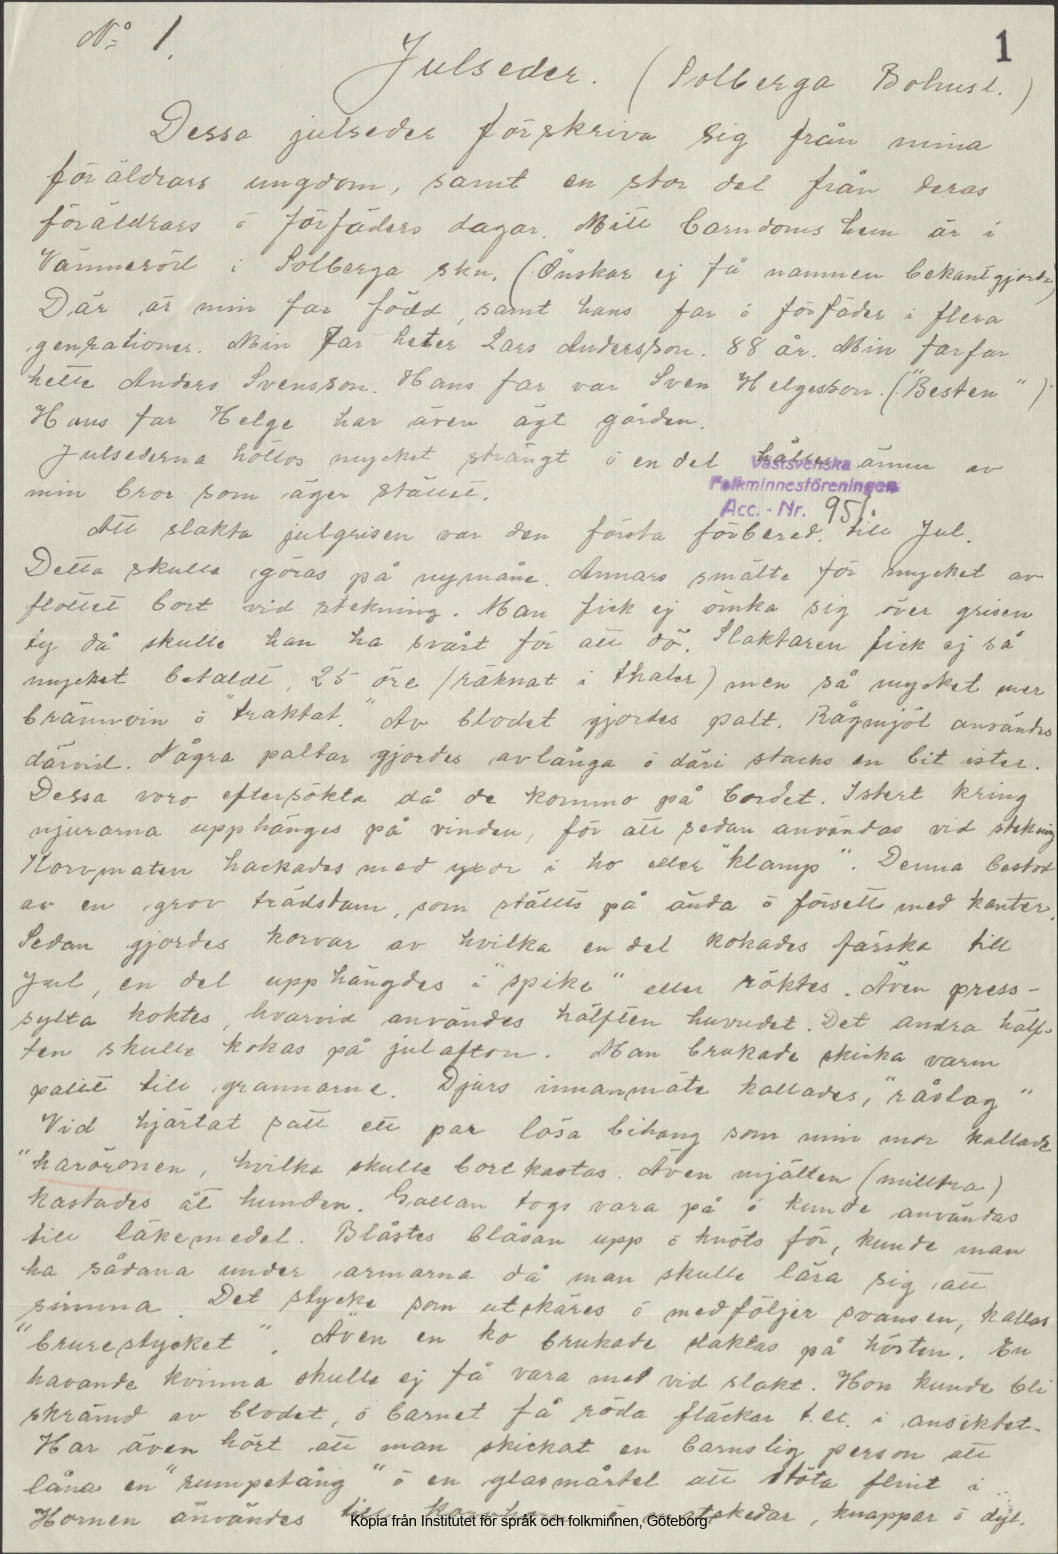 No 1.
1
Julseder. (Solberga Bohusl.)
Dessa julseder förskriva sig från mina
föräldrars ungdom, samt en stor del från deras
föräldrars o förfäders dagar. Mitt barndoms hem är i
Vämmeröd i Solberga skn. (Önskar ej få namnen bekantgjorda)
Där är min far född, samt hans far o förfäder i flera
generationer. Min far heter Lars Andersson. 88 år. Min farfar
hette Anders Svensson. Hans far var Sven Helgesson. ("Besten")
Hans far Helge har även ägt gården.
Julsederna höllos mycket strängt o en del hålles ännu av
min bror som äger stället.
Västsvenska
Folkminnesföreningen
Acc. - Nr. 951.
Att slakta julgrisen var den första förbered. till Jul.
Detta skulle göras på nymåne. Annars smälte för mycket av
flottet bort vid stekning. Man fick ej ömka sig över grisen
ty då skulle han ha svårt för att dö. Slaktaren fick ej så
mycket betaldt, 25 öre (räknat i thaler) men så mycket mer
brännvin o "traktat." Av blodet gjordes palt. Rågmjöl användes
därvid. Några paltar gjordes avlånga o däri stacks en bit ister.
Dessa voro eftersökta då de kommo på bordet. Istret kring
njurarna upphänges på vinden, för att sedan användas vid stekning
Korvmaten hackades med yxor i ho eller "klamp". Denna bestod
av en grov trädstam, som ställts på ända o försetts med kanter.
Sedan gjordes korvar av hvilka en del kokades färska till
Jul, en del upphängdes i "spike" eller röktes. Även press-
sylta koktes, hvarvid användes hälften huvudet. Det andra hälf-
ten skulle kokas på julafton. Man brukade skicka varm
palt till grannarne. Djurs innanmäte kallades, "råslag"
Vid hjärtat satt ett par lösa bihang som min mor kallade
"haröronen, hvilka skulle bortkastas. Även mjälten (milltra)
kastades åt hunden. Gallan togs vara på o kunde användas
till läkemedel. Blåstes blåsan upp o knöts för, kunde man
ha sådana under armarna då man skulle lära sig att
simma. Det stycke som utskäres o medföljer svansen, kallas
"brurestycket". Även en ko brukade slaktas på hösten. En
havande kvinna skulle ej få vara med vid slakt. Hon kunde bli
skrämd av blodet, o barnet få röda fläckar t. ex. i ansiktet.
Har även hört att man skickat en barnslig person att
låna en "rumpetång" o en glasmårtel att stöta flint i
Hornen användes till o matskedar, knappar o dyl.
Kopia från Institutet för språk och folkminnen, Göteborg